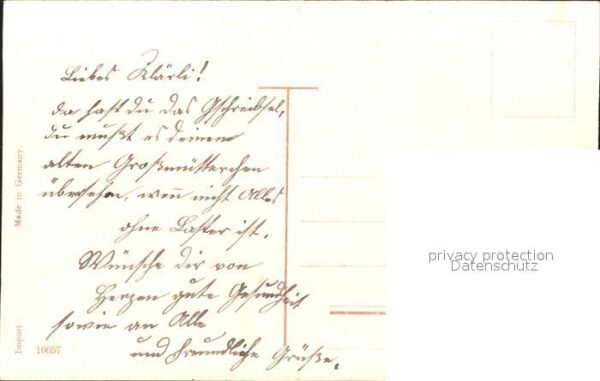 Liebes Klärli!
da hast du das Gschreibsel,
du mußt es deinem
alten Großmütterchen
übersehen, wen nicht Alles
ohne Laster ist.
Wünsche dir von
Herzen gute Gesundheit
sowie an Alle
und freundliche Grüße.
Made in Germany.
Import
10057
privacy protection
Datenschutz